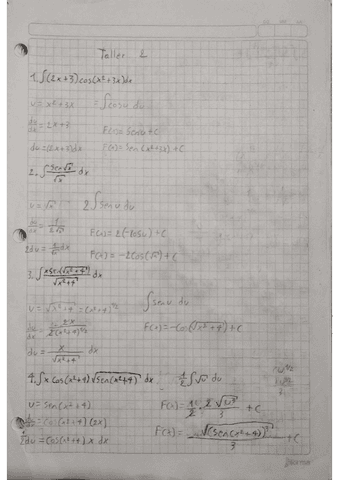 Taller 2
1. ∫(2x+3)cos(x²+3x)dx
u = x²+3x ∫cosu du
du/dx = 2x+3 F(x) = senu + c
du = (2x+3)dx F(x) = Sen(x²+3x) + C
2. ∫ sen√x / √x dx
u = √x 2∫sen u du
du/dx = 1/(2√x) F(x) = 2(-cosu) + C
2du = 1/√x dx F(x) = -2cos(√x) + C
3. ∫ x sen(√(x²+4)) / √(x²+4) dx
u = √(x²+4) = (x²+4)^1/2 ∫senu du
du/dx = 2x / 2(x²+4)^1/2 F(x) = -Cos(√(x²+4)) + C
du = x / √(x²+4) dx
4. ∫x cos(x²+4) √(sen(x²+4)) dx. 1/2 ∫√u du
u = sen(x²+4) F(x) = 1/2 · 2√(u³) / 3 + C
du/dx = cos(x²+4)(2x)
1/2 du = cos(x²+4) x dx F(x) = √((sen(x²+4))³) / 3 + C